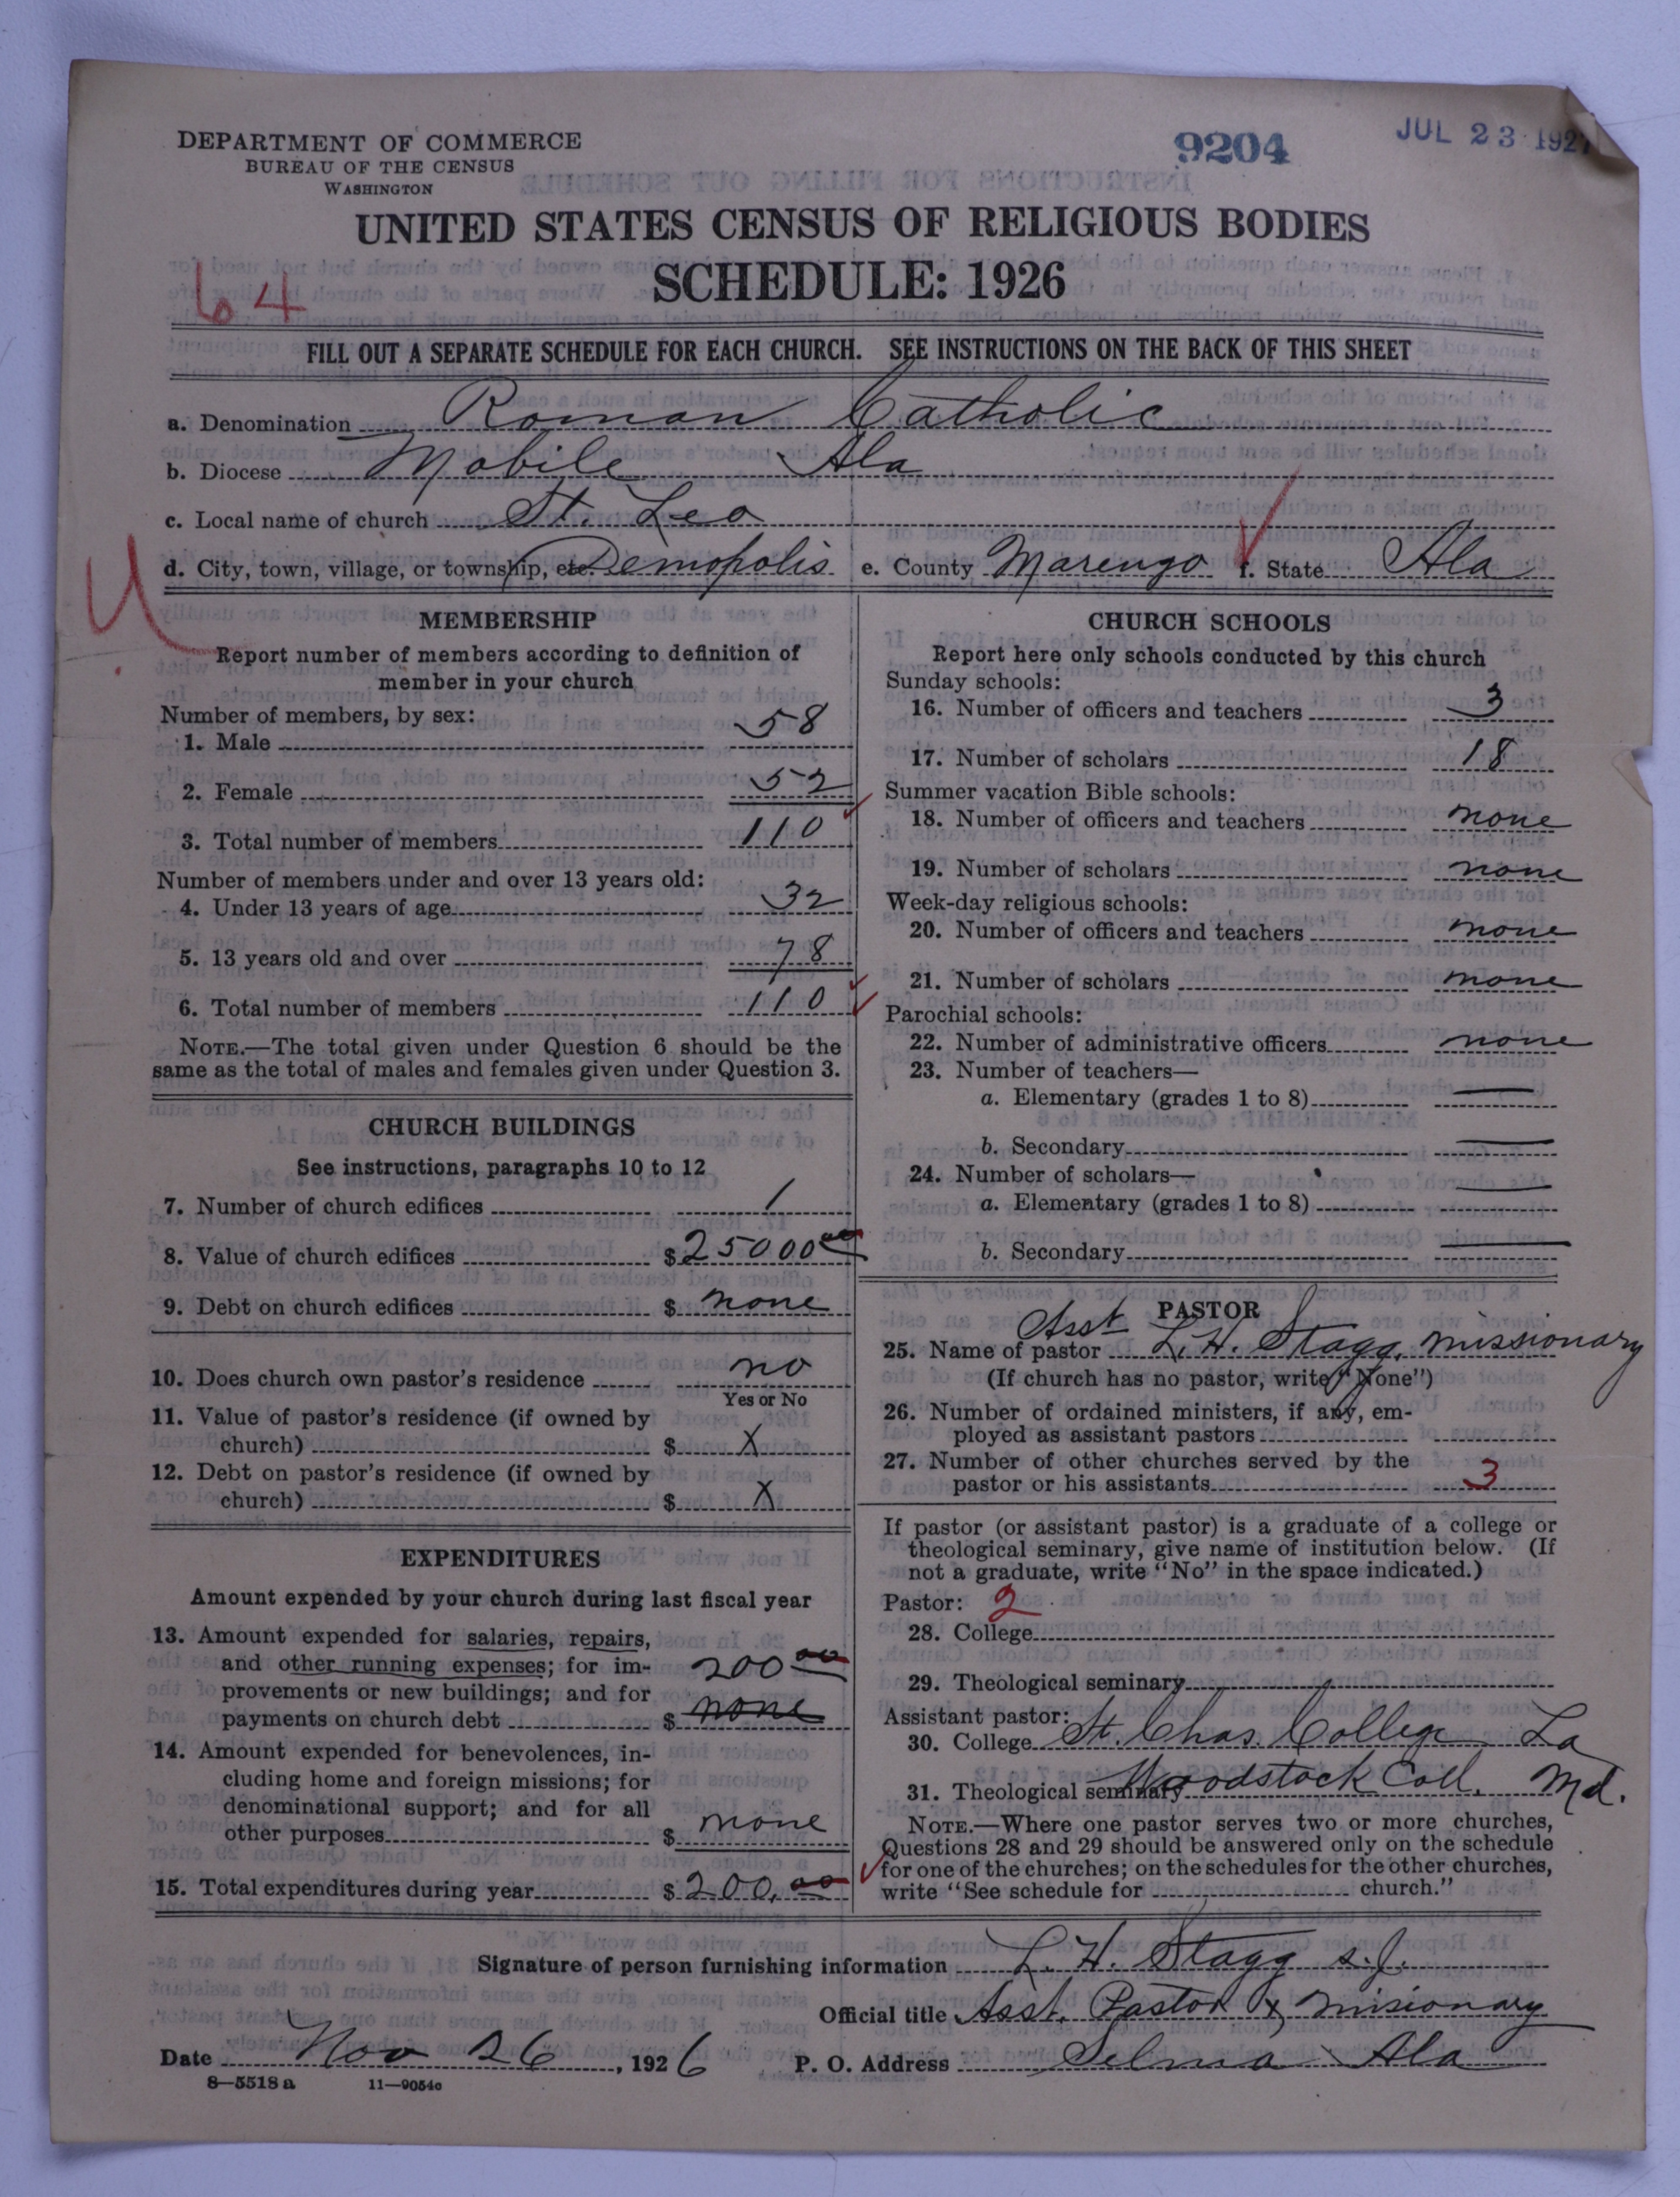 DEPARTMENT OF COMMERCE
BUREAU OF THE CENSUS
WASHINGTON
9204
JUL 23 1927
UNITED STATES CENSUS OF RELIGIOUS BODIES
SCHEDULE: 1926
64
FILL OUT A SEPARATE SCHEDULE FOR EACH CHURCH. SEE INSTRUCTIONS ON THE BACK OF THIS SHEET
a. Denomination Roman Catholic
b. Diocese Mobile Ala
c. Local name of church St. Leo
d. City, town, village, or township, etc. Demopolis e. County Marengo f. State Ala
U
MEMBERSHIP
Report number of members according to definition of
member in your church
Number of members, by sex:
1. Male 58
2. Female 52
3. Total number of members 110
Number of members under and over 13 years old:
4. Under 13 years of age 32
5. 13 years old and over 78
6. Total number of members 110
NOTE.—The total given under Question 6 should be the
same as the total of males and females given under Question 3.
CHURCH BUILDINGS
See instructions, paragraphs 10 to 12
7. Number of church edifices 1
8. Value of church edifices $ 25000 00
9. Debt on church edifices $ none
10. Does church own pastor's residence no
Yes or No
11. Value of pastor's residence (if owned by
church) $ X
12. Debt on pastor's residence (if owned by
church) $ X
EXPENDITURES
Amount expended by your church during last fiscal year
13. Amount expended for salaries, repairs,
and other running expenses; for im-
provements or new buildings; and for
payments on church debt $ 200 00 none
14. Amount expended for benevolences, in-
cluding home and foreign missions; for
denominational support; and for all
other purposes $ none
15. Total expenditures during year $ 200.00
CHURCH SCHOOLS
Report here only schools conducted by this church
Sunday schools:
16. Number of officers and teachers 3
17. Number of scholars 18
Summer vacation Bible schools:
18. Number of officers and teachers none
19. Number of scholars none
Week-day religious schools:
20. Number of officers and teachers none
21. Number of scholars none
Parochial schools:
22. Number of administrative officers none
23. Number of teachers—
a. Elementary (grades 1 to 8)
b. Secondary
24. Number of scholars—
a. Elementary (grades 1 to 8)
b. Secondary
PASTOR
25. Name of pastor Asst L. H. Stagg, missionary
(If church has no pastor, write "None")
26. Number of ordained ministers, if any, em-
ployed as assistant pastors
27. Number of other churches served by the
pastor or his assistants 3
If pastor (or assistant pastor) is a graduate of a college or
theological seminary, give name of institution below. (If
not a graduate, write "No" in the space indicated.)
Pastor: 2
28. College
29. Theological seminary
Assistant pastor:
30. College St. Chas. College La
31. Theological seminary Woodstock Coll. Md.
NOTE.—Where one pastor serves two or more churches,
Questions 28 and 29 should be answered only on the schedule
for one of the churches; on the schedules for the other churches,
write "See schedule for church."
Signature of person furnishing information L. H. Stagg s.j.
Official title Asst. Pastor & misionary
Date Nov 26, 1926 P. O. Address Selma Ala
8—5518 a 11—9054c